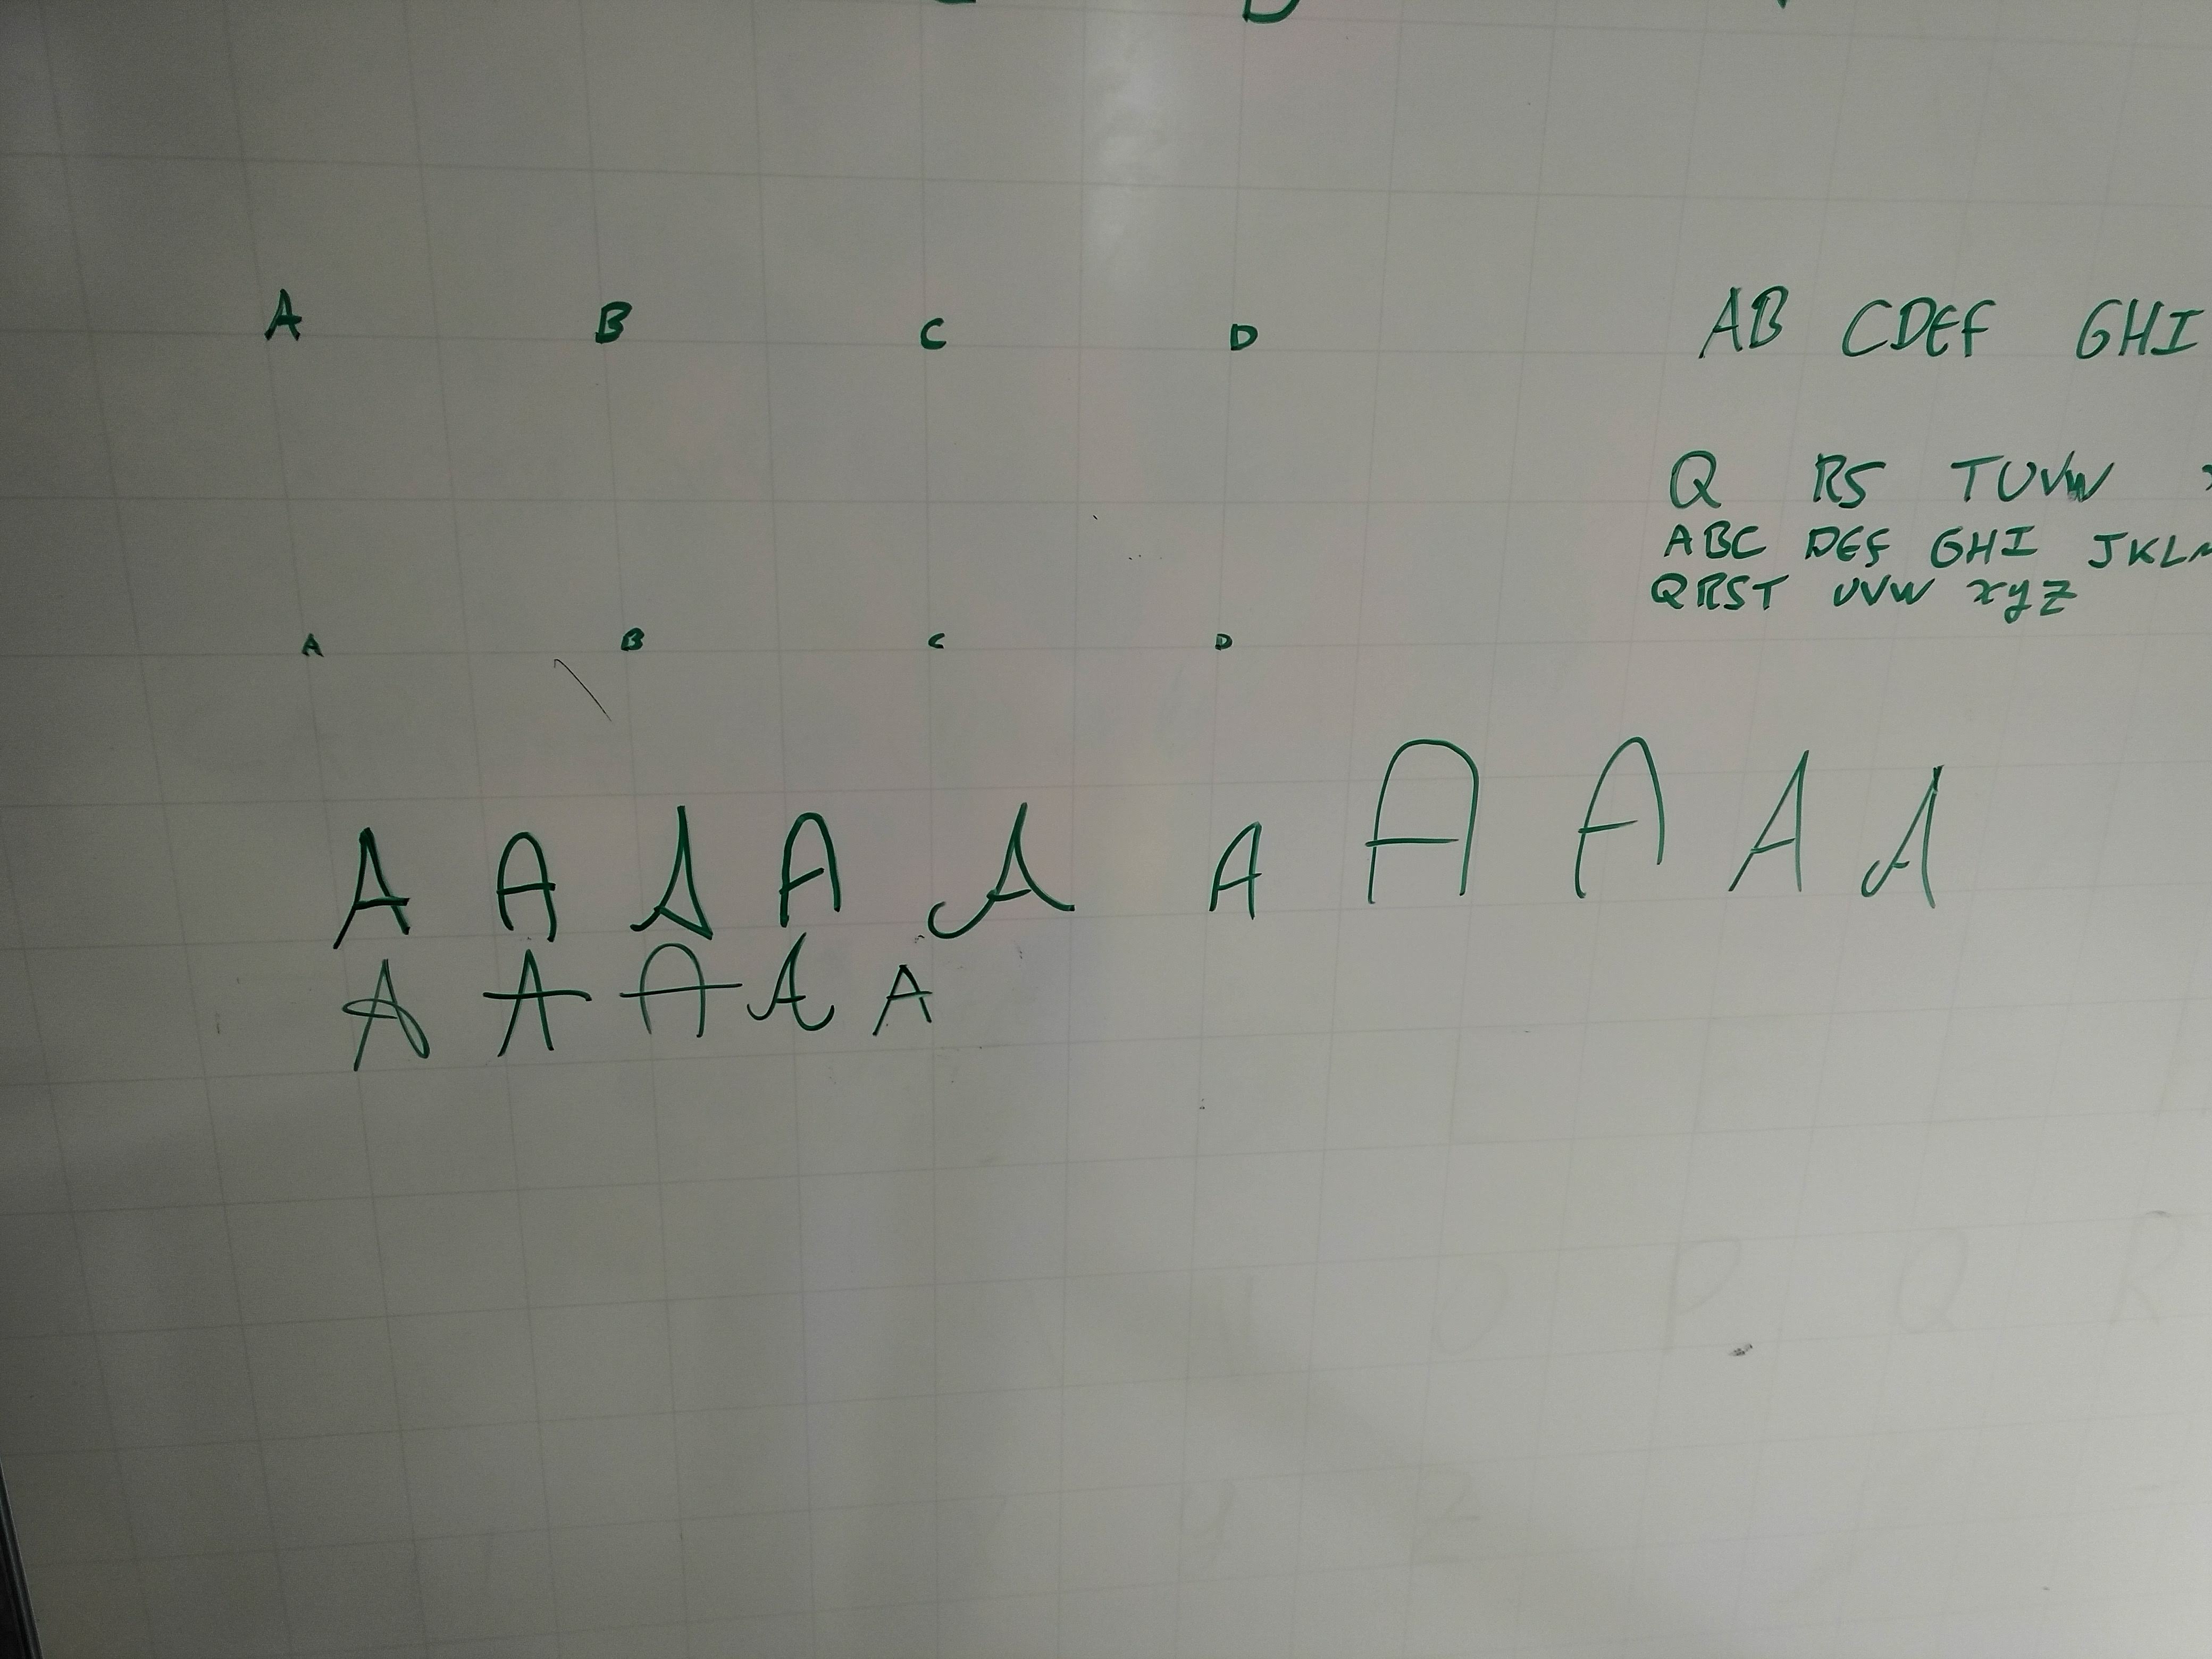 A B C D AB CDEF GHI
Q RS TUVW
ABC DEF GHI JKL
QRST UVW xyz
A B C D
A A A A A A A A A A
A A A A A
O P Q R